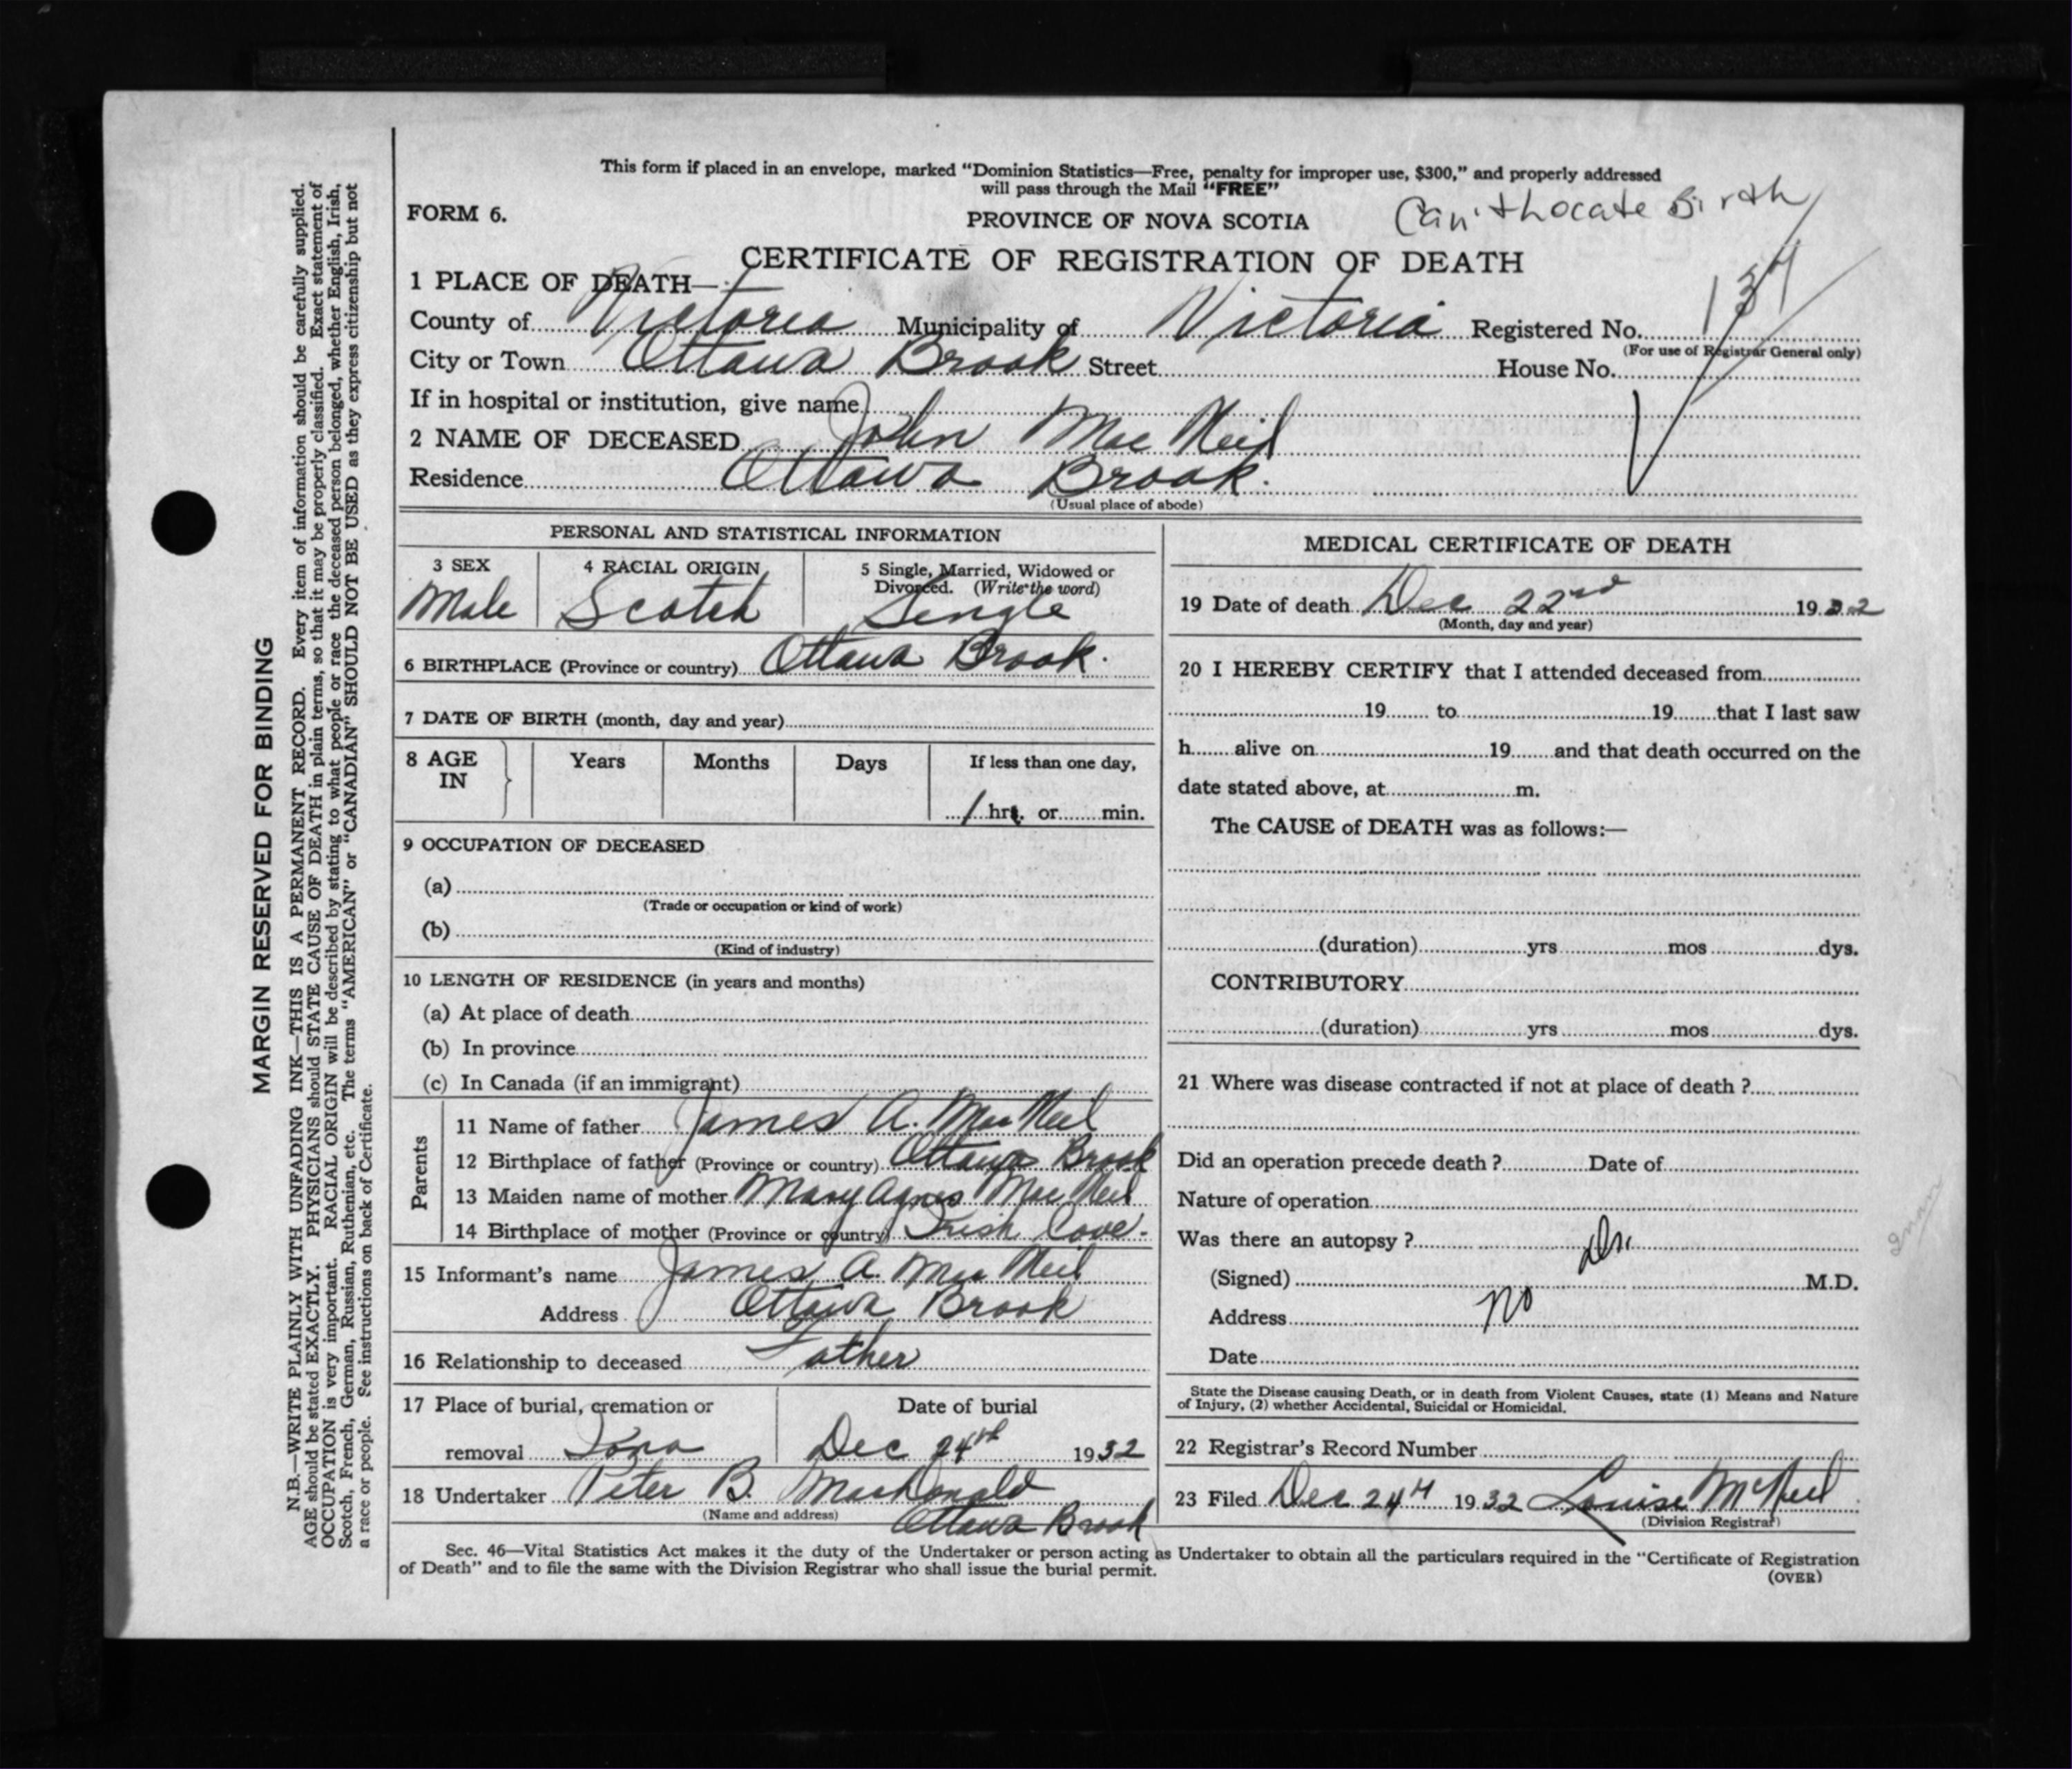 This form if placed in an envelope, marked “Dominion Statistics—Free, penalty for improper use, $300,” and properly addressed
will pass through the Mail “FREE”
FORM 6.
PROVINCE OF NOVA SCOTIA
Can't locate Birth
CERTIFICATE OF REGISTRATION OF DEATH
1 PLACE OF DEATH—
County of Victoria Municipality of Victoria Registered No. 134
(For use of Registrar General only)
City or Town Ottawa Brook Street House No.
If in hospital or institution, give name
2 NAME OF DECEASED John Mac Neil
Residence Ottawa Brook.
(Usual place of abode)
PERSONAL AND STATISTICAL INFORMATION
3 SEX
Male
4 RACIAL ORIGIN
Scotch
5 Single, Married, Widowed or
Divorced. (Write the word)
Single
6 BIRTHPLACE (Province or country) Ottawa Brook.
7 DATE OF BIRTH (month, day and year)
8 AGE
IN
Years
Months
Days
If less than one day,
1 hrs. or min.
9 OCCUPATION OF DECEASED
(a)
(Trade or occupation or kind of work)
(b)
(Kind of industry)
10 LENGTH OF RESIDENCE (in years and months)
(a) At place of death
(b) In province
(c) In Canada (if an immigrant)
Parents
11 Name of father James A. Mac Neil
12 Birthplace of father (Province or country) Ottawa Brook
13 Maiden name of mother Mary Agnes Mac Neil
14 Birthplace of mother (Province or country) Irish Cove.
15 Informant's name James A. Mac Neil
Address Ottawa Brook
16 Relationship to deceased Father
17 Place of burial, cremation or
removal Iona
Date of burial
Dec 24th 1932
18 Undertaker Peter B. MacDonald
(Name and address)
Ottawa Brook
MEDICAL CERTIFICATE OF DEATH
19 Date of death Dec 22nd 1932
(Month, day and year)
20 I HEREBY CERTIFY that I attended deceased from
19 to 19 that I last saw
h alive on 19 and that death occurred on the
date stated above, at m.
The CAUSE of DEATH was as follows:—
(duration) yrs mos dys.
CONTRIBUTORY
(duration) yrs mos dys.
21 Where was disease contracted if not at place of death ?
Did an operation precede death ? Date of
Nature of operation
Was there an autopsy ?
(Signed) Dr. M.D.
Address no
Date
State the Disease causing Death, or in death from Violent Causes, state (1) Means and Nature
of Injury, (2) whether Accidental, Suicidal or Homicidal.
22 Registrar's Record Number
23 Filed Dec 24th 1932 Louise McNeil
(Division Registrar)
Sec. 46—Vital Statistics Act makes it the duty of the Undertaker or person acting as Undertaker to obtain all the particulars required in the “Certificate of Registration
of Death” and to file the same with the Division Registrar who shall issue the burial permit.
(OVER)
MARGIN RESERVED FOR BINDING
N.B.—WRITE PLAINLY WITH UNFADING INK—THIS IS A PERMANENT RECORD. Every item of information should be carefully supplied.
AGE should be stated EXACTLY. PHYSICIANS should STATE CAUSE OF DEATH in plain terms, so that it may be properly classified. Exact statement of
OCCUPATION is very important. RACIAL ORIGIN will be described by stating to what people or race the deceased person belonged, whether English, Irish,
Scotch, French, German, Russian, Ruthenian, etc. The terms “AMERICAN” or “CANADIAN” SHOULD NOT BE USED as they express citizenship but not
a race or people. See instructions on back of Certificate.